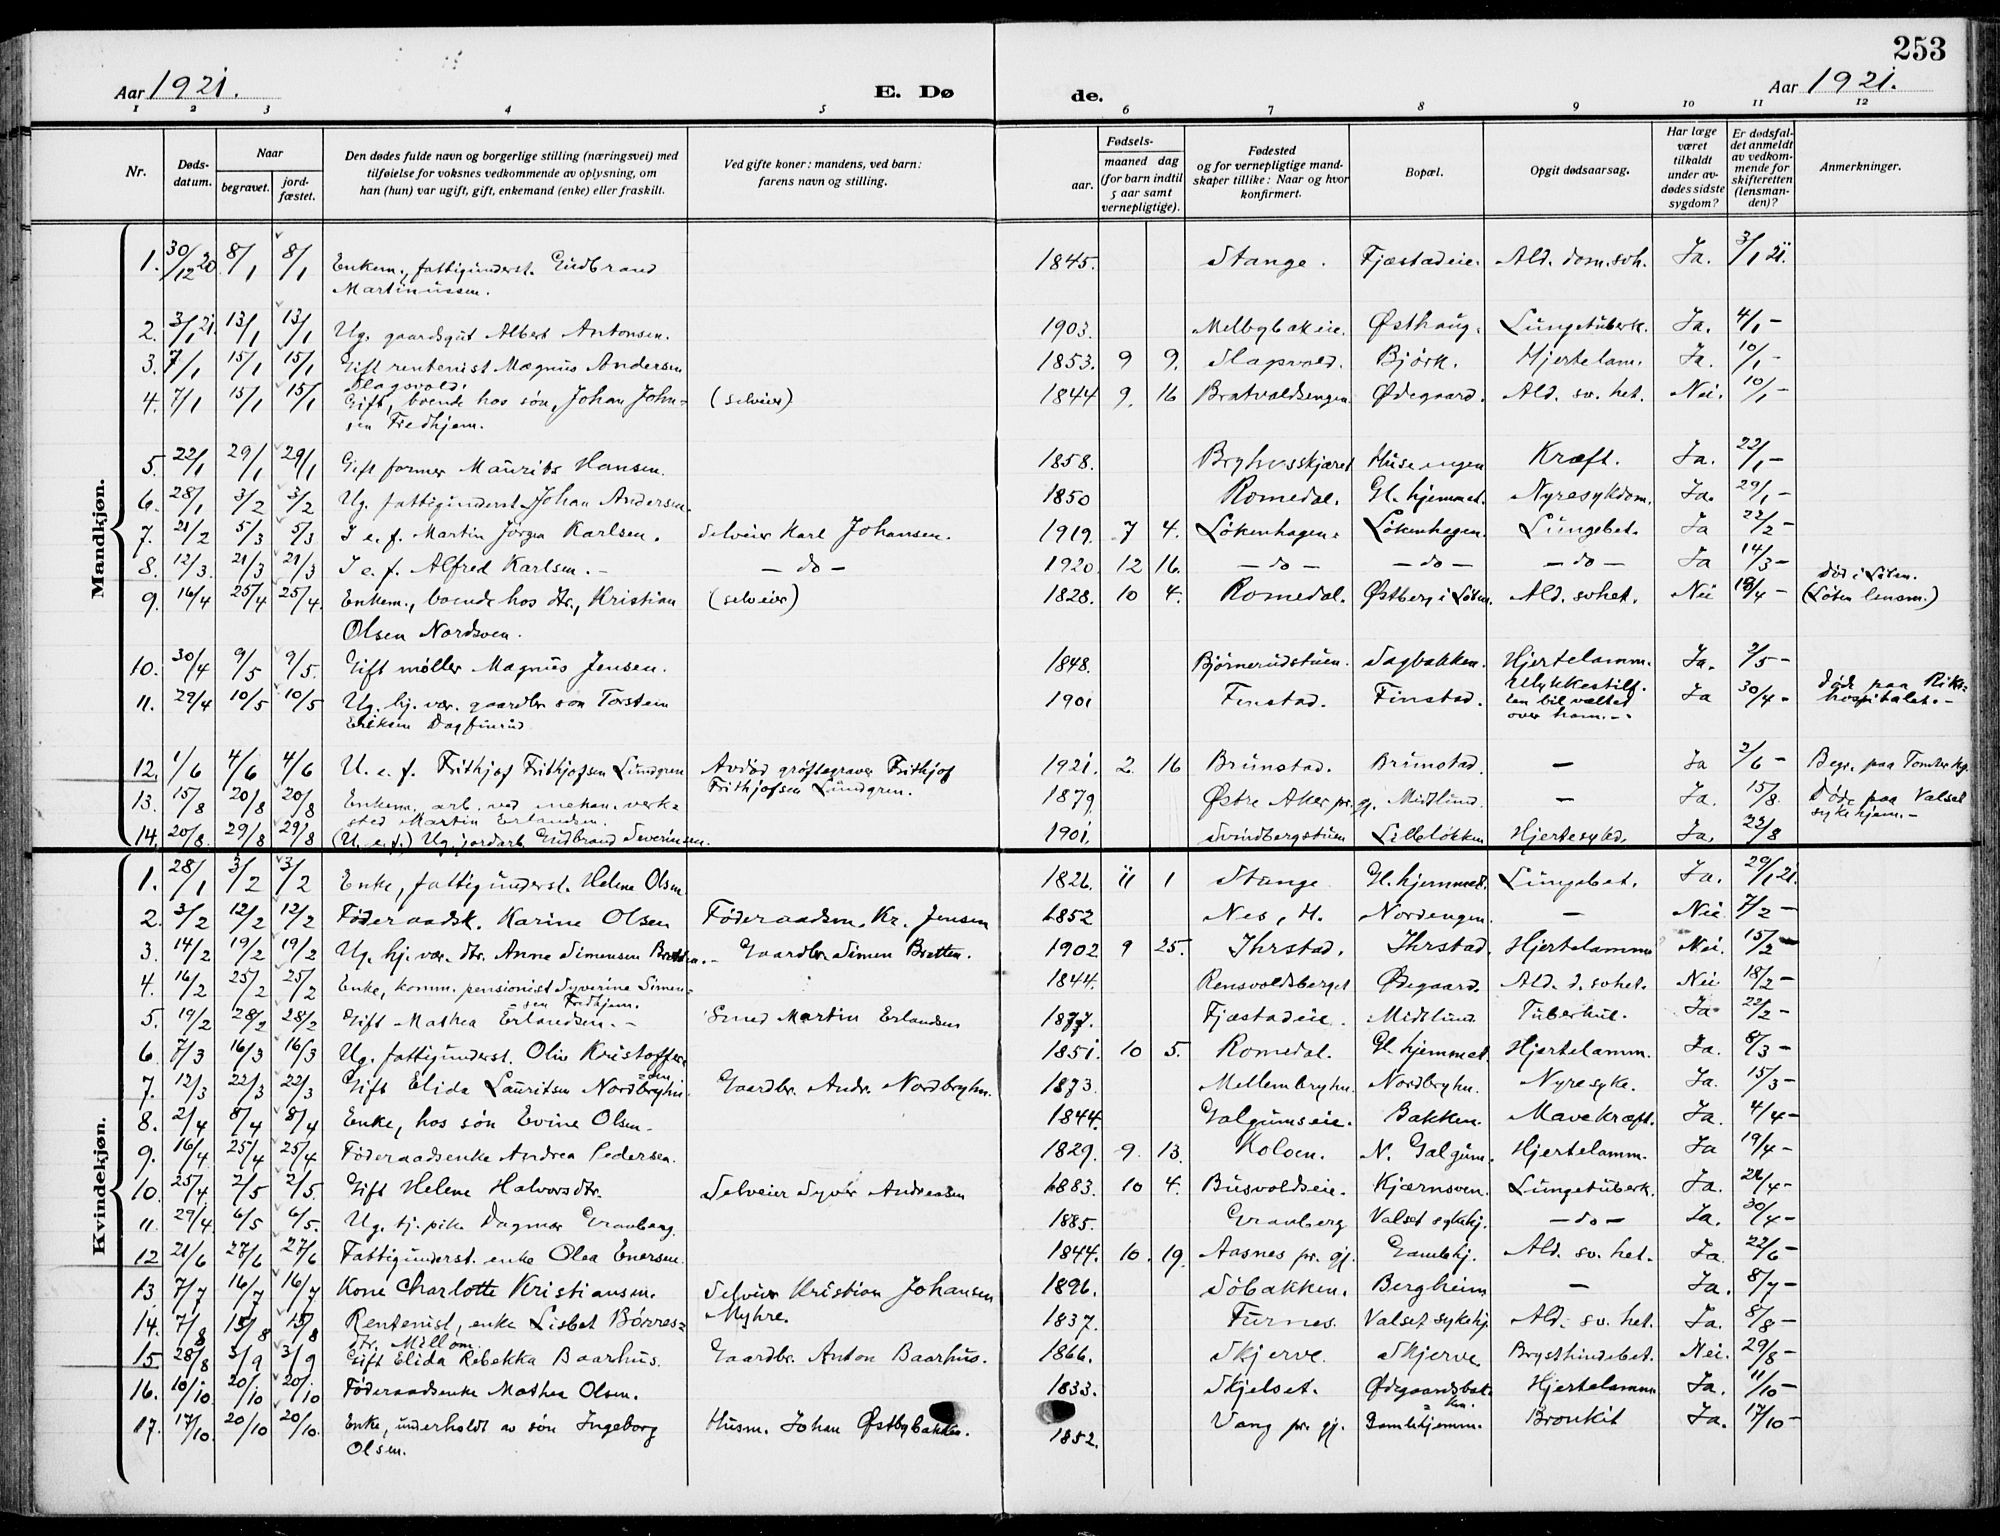 253
Aar 1921. E. Dø de. Aar 1921.
1 2 3 4 5 6 7 8 9 10 11 12
Nr. Døds-datum. Naar begravet. jord-fæstet. Den dødes fulde navn og borgerlige stilling (næringsvei) med tilføielse for voksnes vedkommende av oplysning, om han (hun) var ugift, gift, enkemand (enke) eller fraskilt. Ved gifte koner: mandens, ved barn: farens navn og stilling. Fødsels- aar. maaned dag (for barn indtil 5 aar samt vernepligtige). Fødested og for vernepligtige mand-skaper tillike: Naar og hvor konfirmert. Bopæl. Opgit dødsaarsag. Har læge været tilkaldt under av-dødes sidste sygdom? Er dødsfal-det anmeldt av vedkom-mende for skifteretten (lensman-den)? Anmerkninger.
Mandkjøn.
1. 30/12 20 8/1 8/1 Enkem., fattigunderst. Gudbrand Martinussen. 1845. Stange. Fjæstadeie. Ald. dom. svh. Ja. 3/1 21.
2. 3/1 21 13/1 13/1 Ug. gaardsgut Albert Antonsen. 1903. Melbybakeie. Østhaug. Lungetuberk. Ja. 4/1 -
3. 7/1 15/1 15/1 Gift rentenist Magnus Andersen Slagsvold. 1853. 9 9. Slagsvold. Bjørk. Hjertelam. Ja. 10/1 -
4. 7/1 15/1 15/1 Gift, boende hos søn, Johan John-sen Fredhjem. (selveier) 1844 9. 16 Bratvoldsengen Ødegaard. Ald. sv. het. Nei. 10/1 -
5. 22/1 29/1 29/1 Gift former Maurits Hansen. 1858. Bryhnsskjæret Huse engen Kræft. Ja. 22/1 -
6. 28/1 3/2 3/2 Ug. fattigunderst. Johan Andersen. 1850 Romedal. Gl. hjemmet. Nyresykdom. Ja. 29/1 -
7. 21/2 5/3 5/3 I e. f. Martin Jørgen Karlsen. Selveier Karl Johansen. 1919. 7 4. Løkenhagen. Løkenhagen. Lungebet. Ja 22/2 -
8. 12/3. 21/3 21/3 I e. f. Alfred Karlsen. - - do - 1920. 12 16. - do - - do - - do - Ja 14/3 -
9. 16/4 25/4 25/4. Enkem., boende hos dtr., Kristian Olsen Nordsven. (selveier) 1828. 10 4. Romedal. Østberg i Løten. Ald. svhet. Nei 18/4 - Død i Løten. (Løten lensm.)
10. 30/4 9/5 9/5. Gift møller Magnus Jensen. 1848. Bjørnerudstuen. Sagbakken. Hjertelamm. Ja. 2/5 -
11. 29/4 10/5 10/5 Ug. hj. vær. gaardbr. søn Torstein Eriksen Dagfinrud 1901 Finstad. Finstad. Ulykkestilf. (en bil væltet over ham. -. Ja 30/4 - Døde paa Riks-hospitalet. -
12. 1/6 4/6 4/6 U. e. f. Frithjof Frithjofsen Lundgren Avdød grøftegraver Frithjof Frithjofsen Lundgren. 1921. 2 16 Brunstad. Brunstad. - Ja 2/6 - Begr. paa Tomter kg.
13. 15/8 20/8 20/8 Enkem. arb. ved mekan. verk-sted Martin Erlandsen. 1879 Østre Aker pr. gj. Midtlund. - Ja. 15/8. Døde paa Valset sykehjem. -
14. 20/8. 29/8 29/8 (U. e. f.) Ug. jordarb. Gudbrand Severinsen. 1901. Svindbergstuen Lilleløkken Hjertesykd. Ja. 22/8
Kvindekjøn.
1. 28/1 3/2 3/2 Enke, fattigunderst. Helene Olsen 1826. 11 1 Stange Gl. hjemmet. Lungebet. Ja. 29/1 21.
2. 3/2 12/2 12/2 Føderaadsk. Karine Olsen Føderaadsm. Kr. Jensen 1852 Nes, H. Nordengen. - Nei 7/2 -
3. 14/2 19/2 19/2 Ug. hj. vær. dtr. Anne Simensen Bratten. - Gaardbr. Simen Bratten. 1902 9 25. Ihrstad. Ihrstad. Hjertelamme Nei. 15/2 -
4. 16/2 25/2 25/2 Enke, komm. pensionist Syverine Simen-sen Fredhjem. 1844. Rensvoldsberget Ødegaard. Ald. d. svhet. Nei 18/2 -
5. 19/2 28/2 28/2 Gift Mathea Erlandsen. - Smed Martin Erlandsen 1877. Fjæstadeie. Midtlund Tuberkul. Ja 22/2 -
6. 7/3 16/3 16/3 Ug. fattigunderst. Oliv Kristoffer-sen. 1851. 10 5. Romedal. Gl. hjemmet. Hjertelamm. Ja. 8/3 -
7. 12/3 22/3 22/3 Gift Elida Lauritsen Nordbryhn. Gaardbr. Andr. Nordbryhn. 1873. Mellembryhn. Nordbryhn. Nyresyke. Ja. 15/3 -
8. 2/4 8/4 8/4 Enke, hos søn Evine Olsen. 1844. Galgumseie. Bakken. Mavekræft. Ja. 4/4 -
9. 16/4. 25/4 25/4 Føderaadsenke Andrea Pedersen. 1829. 9. 13. Koloen. N. Galgum. Hjertelamm. Ja 19/4 -
10. 25/4. 2/5 2/5. Gift Helene Halvorsdtr. Selveier Syver Andreasen 1883. 10 4. Busvoldseie. Kjærnsven. Lungetuberk. Ja. 26/4 -
11. 29/4. 6/5 6/5. Ug. tj. pike Dagmar Gravberg. 1885. Gravberg Valset sykehj. - do - Ja. 30/4 -
12 21/6 27/6 27/6 Fattigunderst. enke Olea Enersen. 1844. 10. 19. Aasnes pr. gj. Gamlehj. Ald. sv. het. Ja 22/6 -
13 7/7 16/7 16/7 Kone Charlotte Kristiansen. Selveier Kristian Johansen Myhre. 1896. Søbakken. Bergheim - Ja. 8/7 -
14. 7/8 15/8 15/8 Rentenist, enke Lisbet Børres-dtr. Millom. 1837. Furnes. Valset sykehj. Ald. sv. het. Ja. 8/8 -
15 28/8 3/9 3/9 Gift Elida Rebekka Baarhus. Gaardbr. Anton Baarhus. 1866. Skjerve. Skjerve Brysthindebet. Nei. 29/8 -
16. 10/10 20/10 20/10 Føderaadsenke Mathea Olsen. 1833. Skjelset. Ødegaardsbak-ken. Hjertelamm Ja. 11/10 -
17. 17/10. 20/10 20/10. Enke, underholdt av søn Ingeborg Olsen. Husm. Johan Østbybakken. 1852. Vang pr. gj. Gamlehjemm. Bronkit Ja. 17/10 -